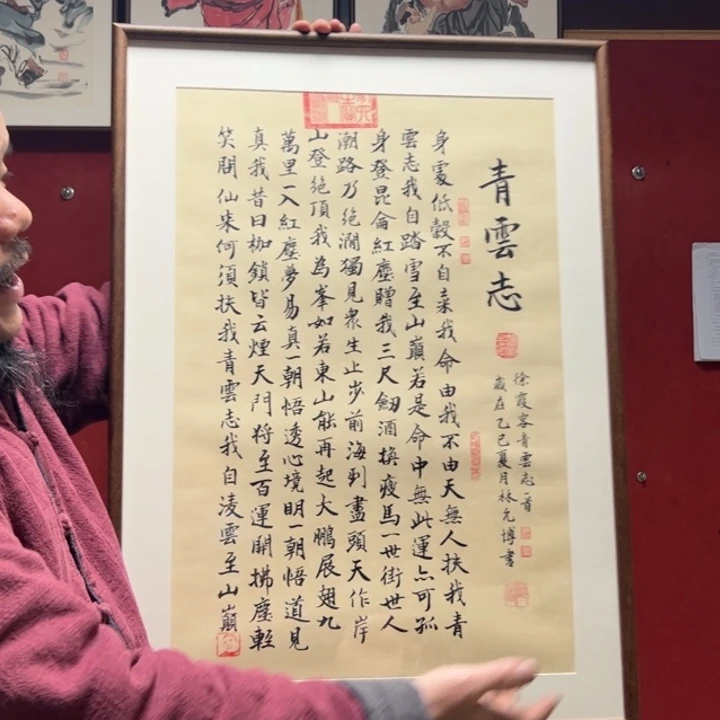 青雲志
徐霞客青雲志一首
歲在乙巳夏月林允博書
身處低穀不自棄我命由我不由天無人扶我青
雲志我自踏雪至山巔若是命中無此運亦可孤
身登昆侖紅塵贈我三尺劍酒換瘦馬一世街世人
潮路乃絕澗獨見衆生止步前海到盡頭天作岸
山登絕頂我為峯如若東山能再起大鵬展翅九
萬里一入紅塵夢易真一朝悟透心境明一朝悟道見
真我昔日枷鎖皆云煙天門將至百運開拂塵輕
笑問仙來何須扶我青雲志我自淩雲至山巔